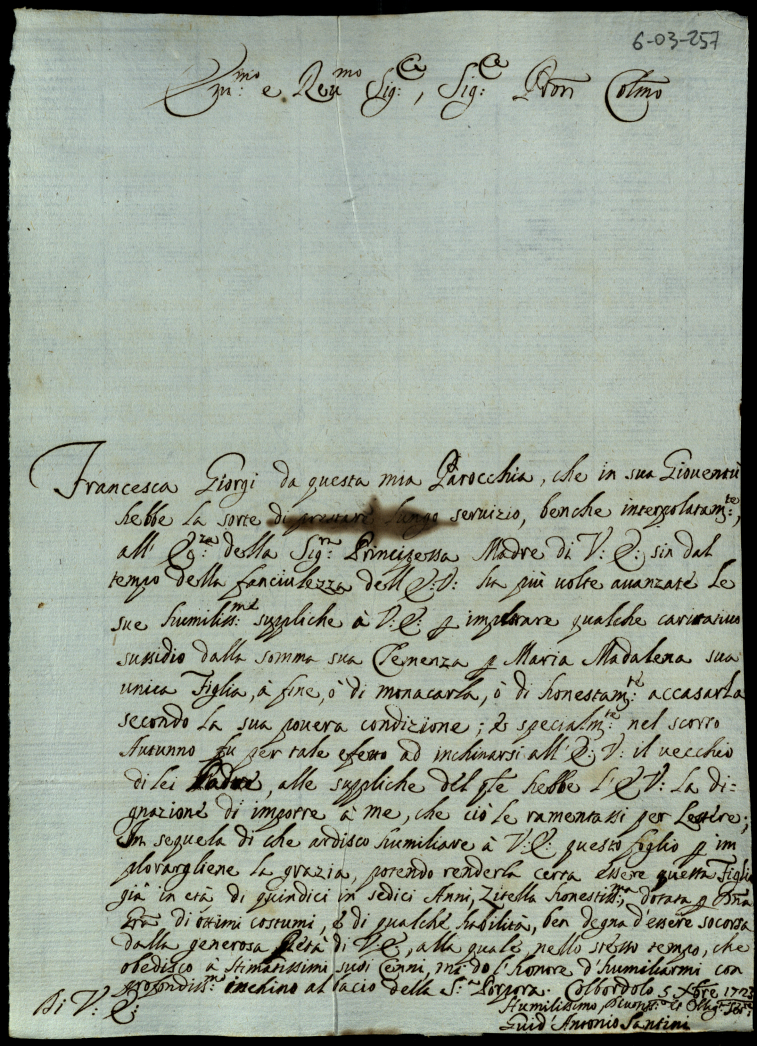 6-03-257
Em:mo e Reu:mo Sig:re, Sig:re Pron Colmo
Francesca Giorgi da questa mia Parocchia, che in sua Gioventù
hebbe la sorte di prestare lungo servizio, benche interpolatam:te,
all' Ecc:za della Sig:ra Principessa Madre di V: E: sin dal
tempo della fanciulezza dell'E:V: ha più volte avanzate le
sue humiliss:me suppliche à V:E: p impetrare qualche caritativo
sussidio dalla somma sua Clemenza p Maria Madalena sua
unica Figlia, à fine, ò di monacarla, ò di honestam:te accasarla
secondo la sua povera condizione; & specialm:te nel scorso
Autunno fu per tale efetto ad inchinarsi all'E: V: il vecchio
di lei Padre, alle suppliche del qle hebbe l'E V: la di-
gnazione di imporre à me, che ciò le ramentassi per Lettere;
In sequela di che ardisco humiliare à V:E: questo foglio p im
plorargliene la grazia, potendo renderla certa essere questa Figlia
già in età di quindici in sedici Anni, Zitella honestiss:ma, dotata p
di ottimi costumi, & di qualche habilità, ben degna d'essere socorsa
dalla generosa Pietà di V:E:, alla quale nello stesso tempo, che
obedisco à stimatissimi suoi Cenni, mi do l'honore d'humiliarmi con
profondiss:o inchino al bacio della S:ra Porpora. Colbordolo 5 Xbre 1723
Di V: E: Humilissimo, Devotiss:o et Oblig:mo Ser:re
Guid'Antonio Santini